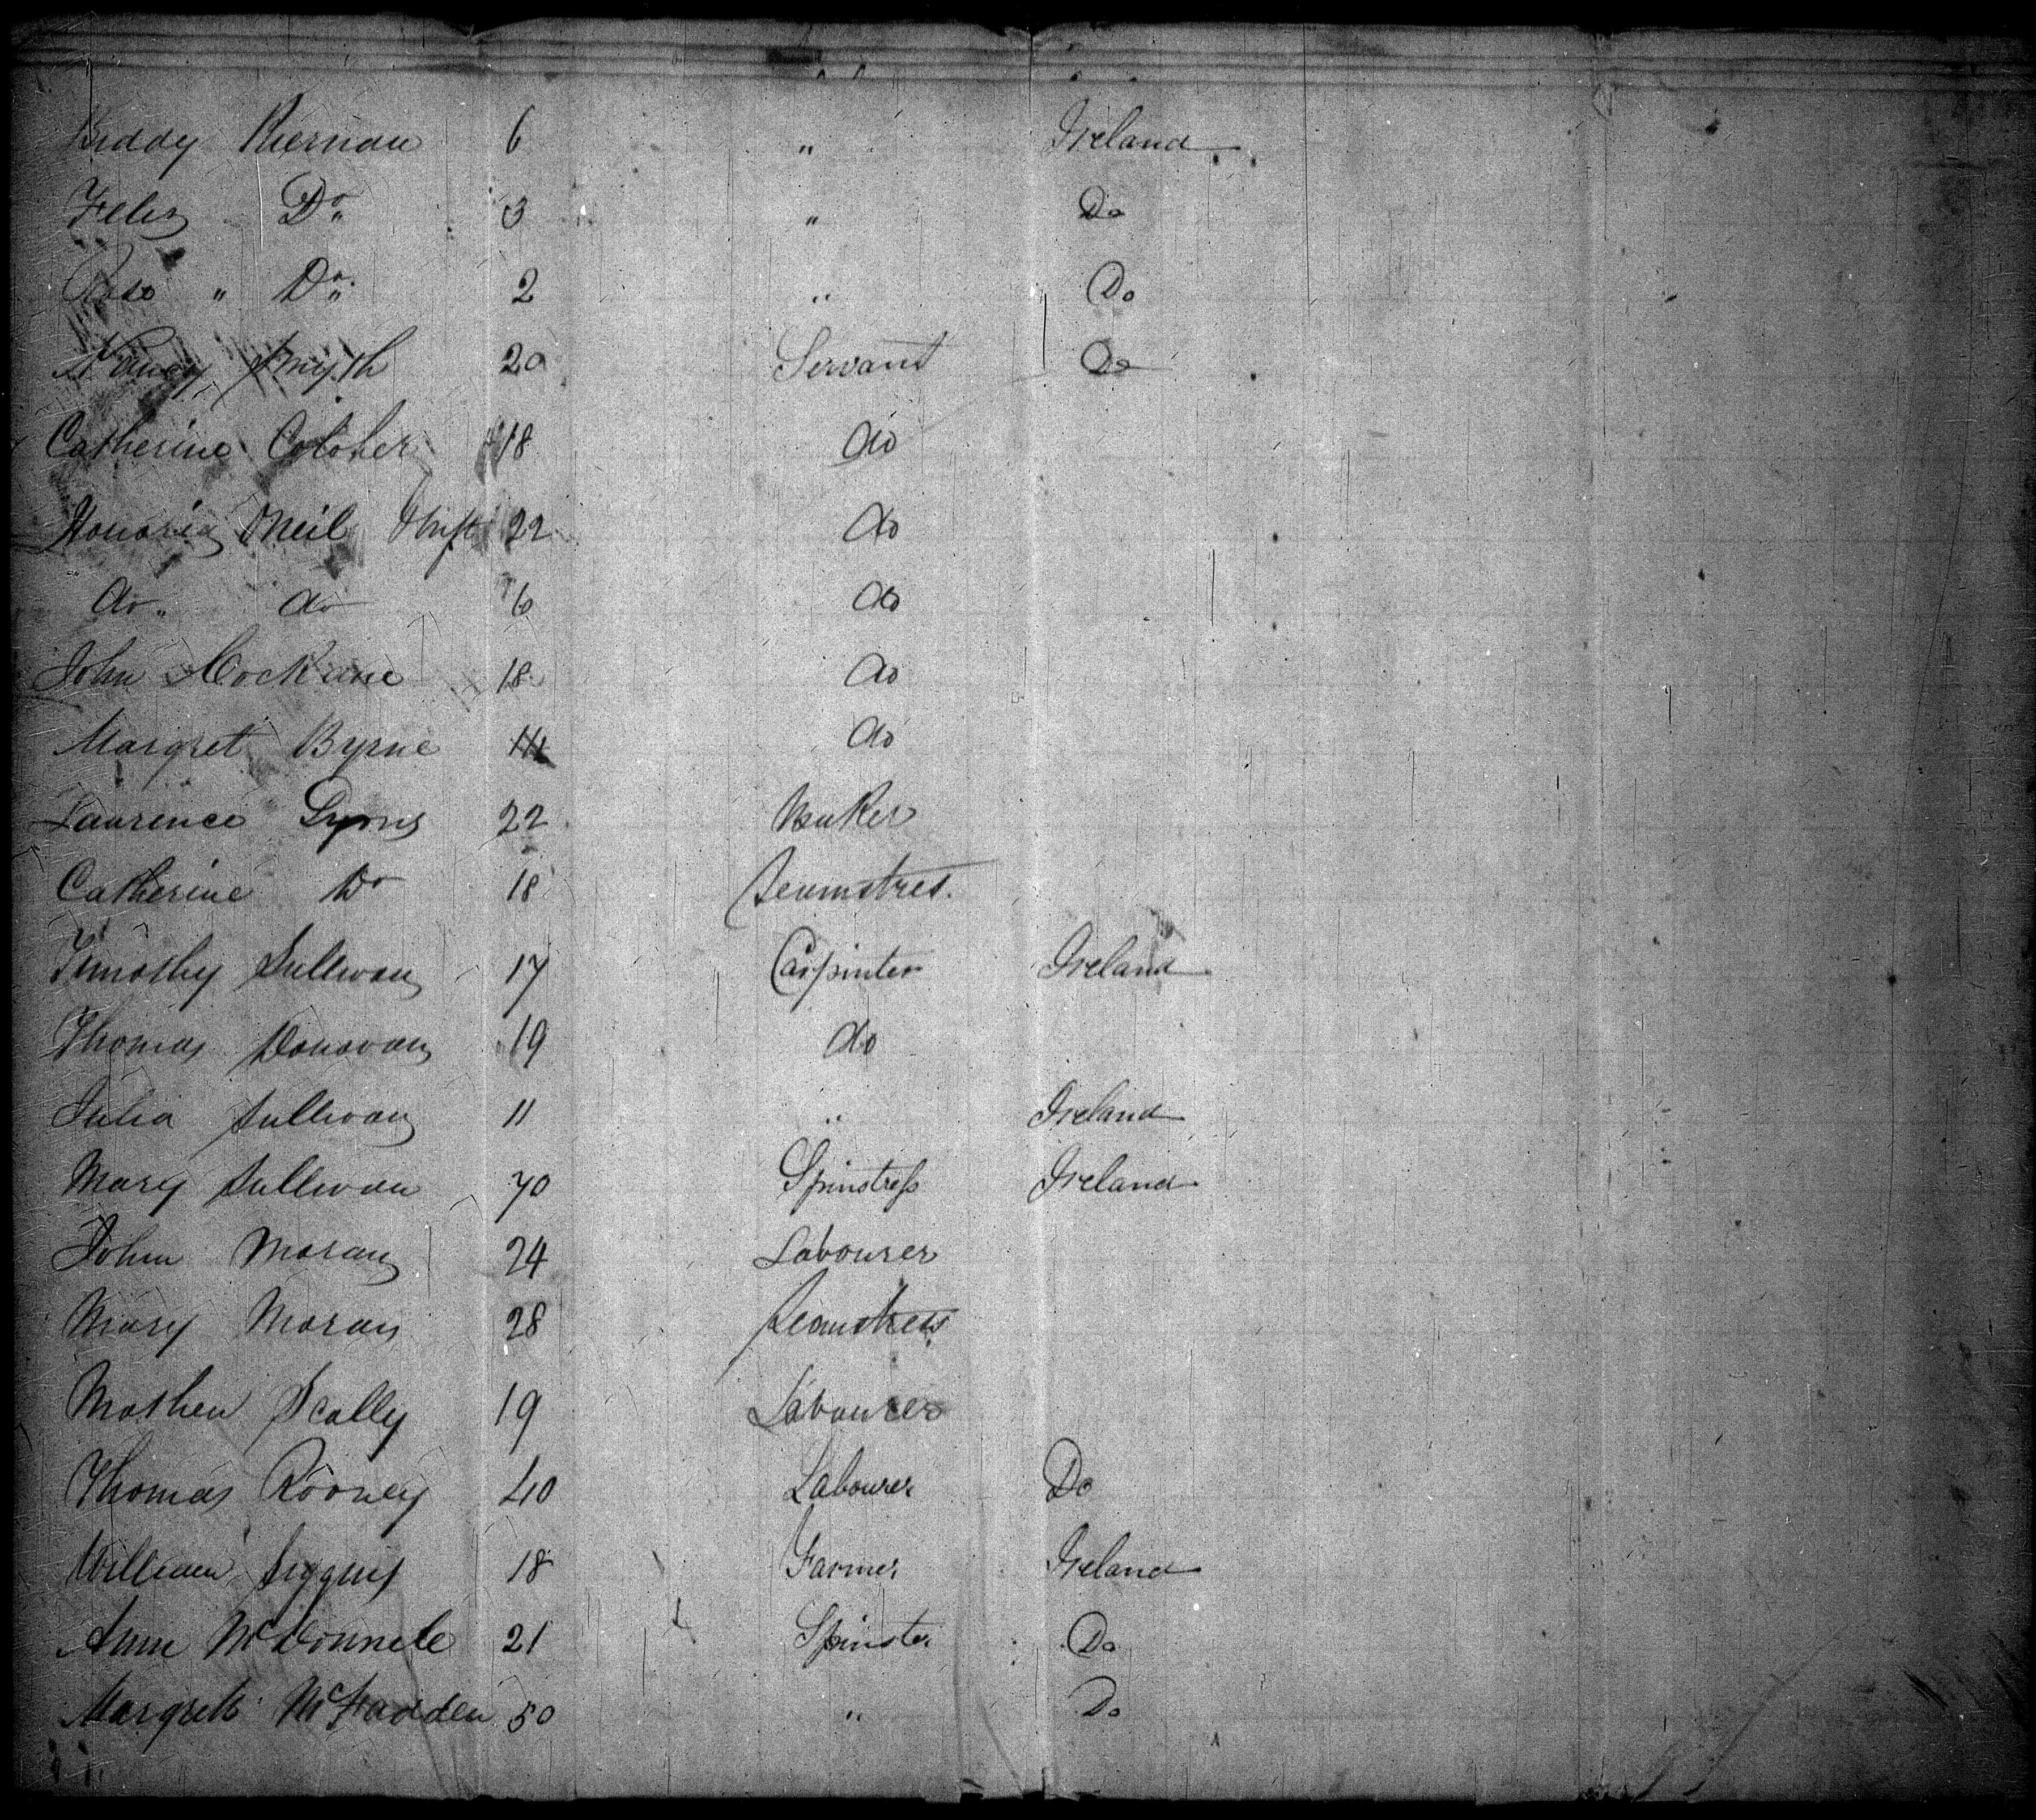 Biddy Kiernan 6 " Ireland
Felix Do 3 " Do
Rose " Do 2 " Do
Nancy Smyth 20 Servant Do
Catherine 18 do
Honoria Neil 22 do
do " do 6 do
John 18 do
Margret Byrne do
Laurence Lyons 22
Catherine Do 18 Seamstres.
Timothy Sullivan 17 Carpinter Ireland
Thomas Donovan 19 do
Julia Sullivan 11 " Ireland
Mary Sullivan 70 Spinstress Ireland
John Moran 24 Labourer
Mary Moran 28 Seamstress
Mathew Scally 19 Labourer
Thomas Rooney 40 Labourer Do
William Siggins 18 Farmer Ireland
Anne McDonnele 21 Spinster Do
Margrett McFadden 50 " Do